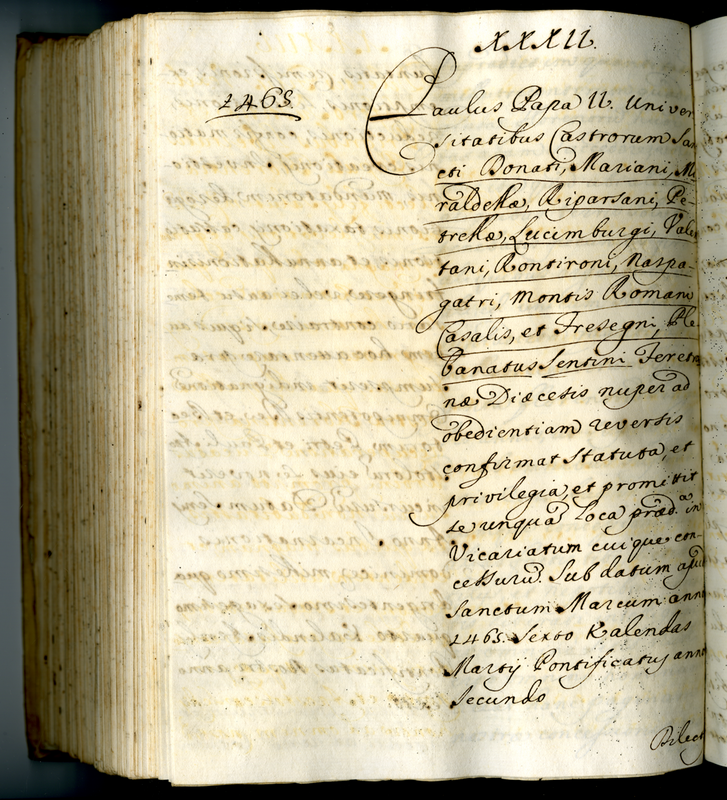 XXXII.
1465
Paulus Papa II. Univer
sitatibus Castrorum San
cti Donati, Mariani, Ma
raldellæ, Ripars​ani, Pe-
trellæ, Lucimburgi, Vale
tani, Rontironi, Naspa-
gatri, Montis Romani
Casalis, et Fresegni, Ple
banatus Sentini Feretra
næ Diœcesis nuper ad
obedientiam reversis
confirmat Statuta, et
privilegia, et promittit
se unquã Loca præd.ª in
Vicariatum cuique con-
cessurũ. Sub datum apud
Sanctum Marcum anno
1465. Sexto Kalendas
Martij Pontificatus anno
secundo
Dilect